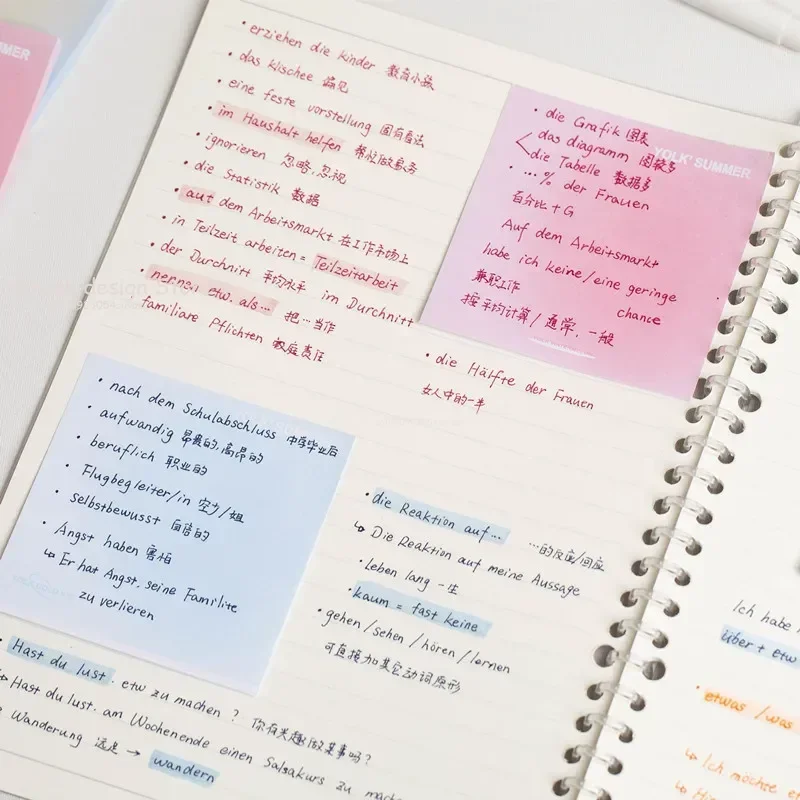 • erziehen die kinder 教育小孩
• das klischee 偏见
• eine feste vorstellung 固有看法
• im Haushalt helfen 帮忙做家务
• ignorieren 忽略,忽视
• die Statistik 数据
• auf dem Arbeitsmarkt 在工作市场上
• in Teilzeit arbeiten = Teilzeitarbeit
• der Durchnitt 平均水平 im Durchnitt
• etw. als... 把...当作
familiare Pflichten 家庭责任
YOLK' SUMMER
• die Grafik 图表
das diagramm 图表多
die Tabelle 数据多
• ...% der Frauen
百分比+G
Auf dem Arbeitsmarkt
habe ich keine/eine geringe
chance
兼职工作
按平均计算/通常,一般
• die Hälfte der Frauen
女人中的一半
• nach dem Schulabschluss 中学毕业后
• aufwandig 昂贵的,高昂的
• beruflich 职业的
• Flugbegleiter/in 空少/姐
• selbstbewusst 自信的
• Angst haben 害怕
↳ Er hat Angst, seine Familite
zu verlieren
• die Reaktion auf... ...的反应/回应
↳ Die Reaktion auf meine Aussage
• Leben lang 一生
• kaum = fast keine
• gehen/sehen/hören/lernen
可直接加其它动词原形
• Hast du lust. etw zu machen ? 你有兴趣做某事吗?
↳ Hast du lust. am Wochenende einen Salsakurs zu mach
Wanderung 远足 → wandern
Ich habe
über + etw
• etwas /was
↳ Ich möchte et
MER